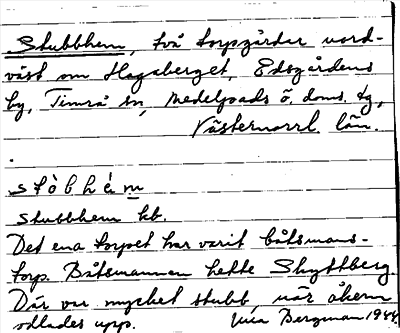 Stubbhem, två torpgårdar nord-
väst om Hagaberget, Edsgårdens
by, Timrå sn, Medelpads ö. doms. tg,
Västernorrl. län.
stòbhém
Stubbhem hb.
Det ena torpet har varit båtsmans-
torp. Båtsmannen hette Skyttberg.
Där var mycket stubb, när åkern
odlades upp. Bergman 1944